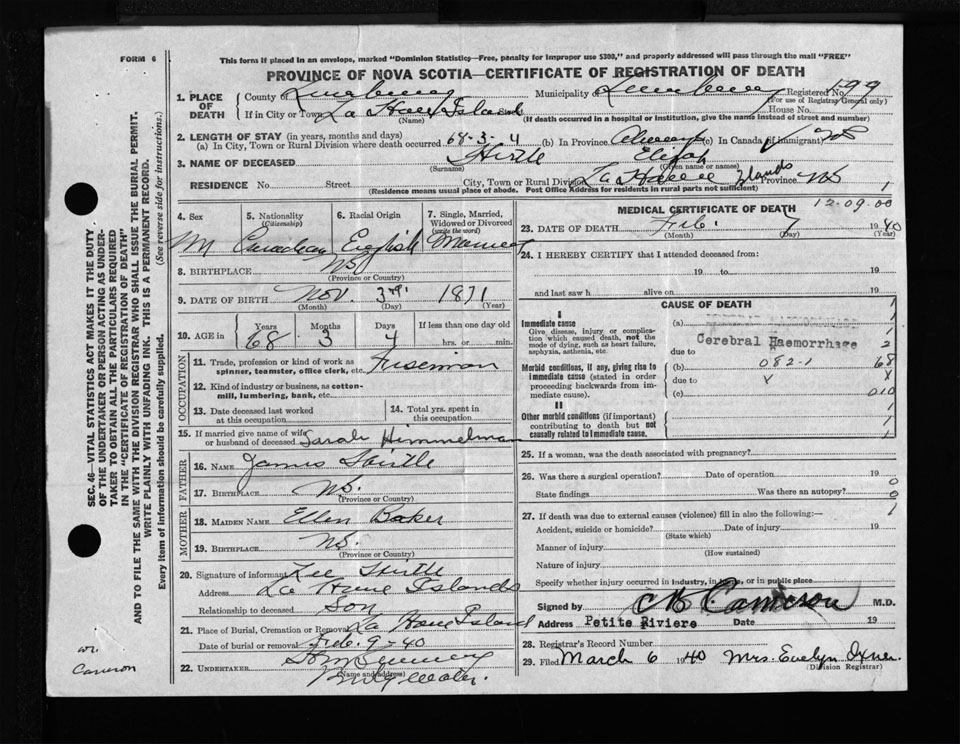 FORM 6
This form if placed in an envelope, marked "Dominion Statistics—Free, penalty for improper use $300," and properly addressed will pass through the mail "FREE"
PROVINCE OF NOVA SCOTIA—CERTIFICATE OF REGISTRATION OF DEATH
1. PLACE OF DEATH
County of Lunenburg Municipality of Lunenburg Registered No. 599
(For use of Registrar General only)
If in City or Town La Have Islands House No.
(Name) (If death occurred in a hospital or institution, give the name instead of street and number)
2. LENGTH OF STAY (in years, months and days)
(a) In City, Town or Rural Division where death occurred 68-3-4 (b) In Province Always (c) In Canada (if immigrant) NS
3. NAME OF DECEASED Hirtle Elijah
(Surname) (Given name or names)
RESIDENCE No. Street City, Town or Rural Division La Have Islands Province NS 1
(Residence means usual place of abode. Post Office Address for residents in rural parts not sufficient)
4. Sex
5. Nationality (Citizenship)
6. Racial Origin
7. Single, Married, Widowed or Divorced (write the word)
M Canadian English Married
8. BIRTHPLACE NS
(Province or Country)
9. DATE OF BIRTH Nov. 3rd 1871
(Month) (Day) (Year)
10. AGE in Years Months Days If less than one day old
68 3 4 hrs. or min.
OCCUPATION
11. Trade, profession or kind of work as spinner, teamster, office clerk, etc. Fisherman
12. Kind of industry or business, as cotton-mill, lumbering, bank, etc.
13. Date deceased last worked at this occupation
14. Total yrs. spent in this occupation
15. If married give name of wife or husband of deceased Sarah Himmelman
FATHER
16. NAME James Hirtle
17. BIRTHPLACE NS.
(Province or Country)
MOTHER
18. MAIDEN NAME Ellen Baker
19. BIRTHPLACE NS.
(Province or Country)
20. Signature of informant Lee Hirtle
Address La Have Islands
Relationship to deceased Son
21. Place of Burial, Cremation or Removal La Have Island
Date of burial or removal Feb. 9-40
22. UNDERTAKER
(Name and address) Bridgewater.
MEDICAL CERTIFICATE OF DEATH 12-09.00
23. DATE OF DEATH Feb. 7 1940
(Month) (Day) (Year)
24. I HEREBY CERTIFY that I attended deceased from:
19 to 19
and last saw h alive on 19
CAUSE OF DEATH
I
Immediate cause
Give disease, injury or complication which caused death, not the mode of dying, such as heart failure, asphyxia, asthenia, etc.
(a)
Cerebral Haemorrhage
due to
Morbid conditions, if any, giving rise to immediate cause (stated in order proceeding backwards from immediate cause).
(b) 082-1
due to X
(c)
II
Other morbid conditions (if important) contributing to death but not causally related to immediate cause.
1
1
2
68
X
010
1
1
1
25. If a woman, was the death associated with pregnancy?
26. Was there a surgical operation? Date of operation 19
State findings Was there an autopsy?
0
0
1
27. If death was due to external causes (violence) fill in also the following:—
Accident, suicide or homicide? Date of injury 19
(State which)
Manner of injury
(How sustained)
Nature of injury
Specify whether injury occurred in industry, in home, or in public place
Signed by Cameron M.D.
Address Petite Riviere Date 19
28. Registrar's Record Number
29. Filed March 6 1940 Mrs. Evelyn Oxner.
(Division Registrar)
SEC. 46—VITAL STATISTICS ACT MAKES IT THE DUTY
OF THE UNDERTAKER OR PERSON ACTING AS UNDER-
TAKER TO OBTAIN ALL THE PARTICULARS REQUIRED
IN THE "CERTIFICATE OF REGISTRATION OF DEATH"
AND TO FILE THE SAME WITH THE DIVISION REGISTRAR WHO SHALL ISSUE THE BURIAL PERMIT.
WRITE PLAINLY WITH UNFADING INK. THIS IS A PERMANENT RECORD.
Every item of information should be carefully supplied. (See reverse side for instructions.)
Cameron